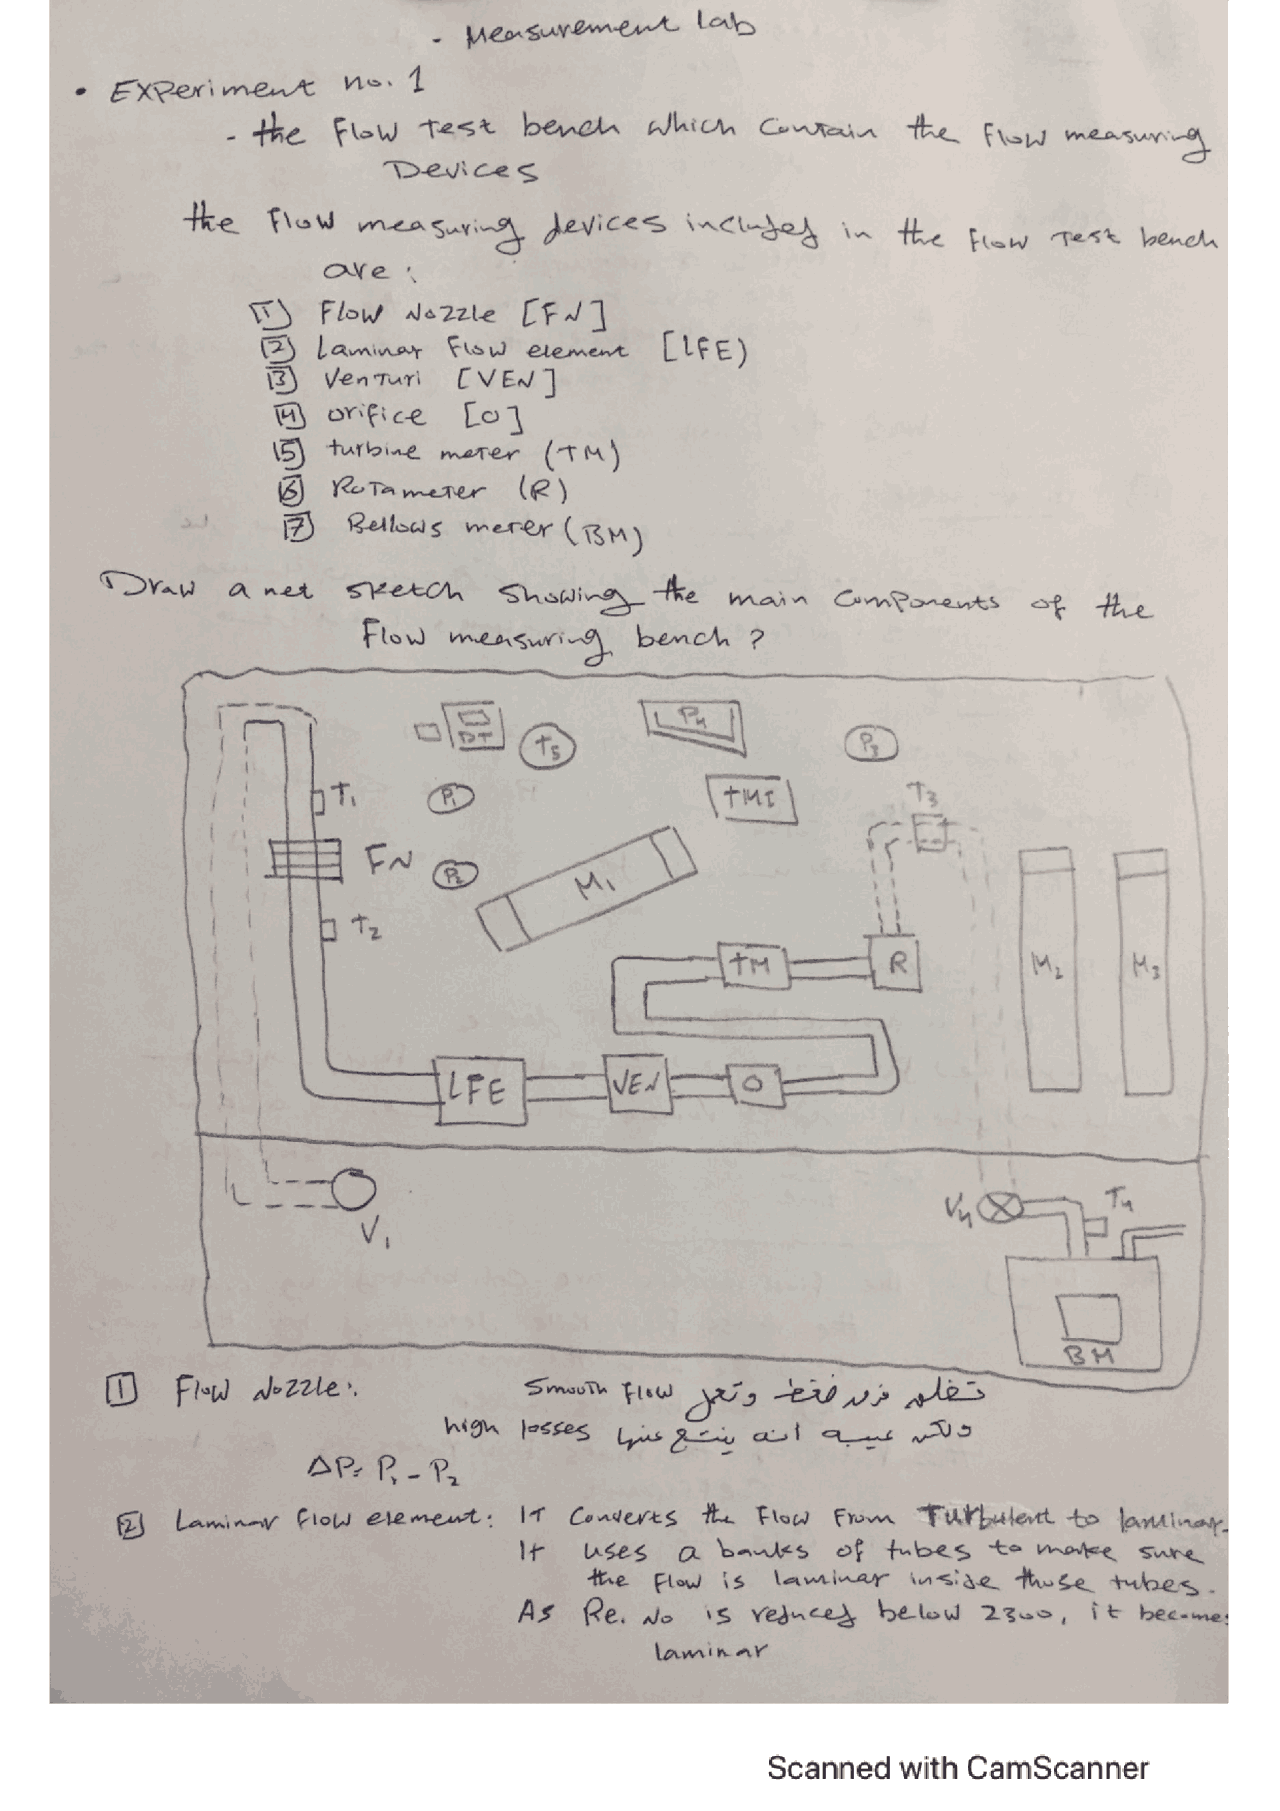 - Measurement Lab
• Experiment no. 1
- the Flow Test bench which Contain the Flow measuring
Devices
the Flow measuring devices included in the Flow Test bench
are :
1 Flow Nozzle [FN]
2 Laminar Flow element [LFE)
3 Venturi [VEN]
4 orifice [O]
5 turbine meter (TM)
6 Rotameter (R)
7 Bellows meter (BM)
Draw a net sketch showing the main Components of the
Flow measuring bench ?
DT
T5
P4
P3
T1
P1
TMI
T3
FN
P2
M1
T2
TM
R
M2
M3
LFE
VEN
O
V1
V4
T4
BM
1 Flow Nozzle:. Smooth Flow وتعمل فقط
high losses ولكن عيبه انه ينتج عنها
ΔP = P1 - P2
2 Laminar Flow element: It Converts the Flow From Turbulent to laminar.
It uses a banks of tubes to make sure
the Flow is laminar inside those tubes.
As Re. No is reduced below 2300, it becomes
laminar
Scanned with CamScanner